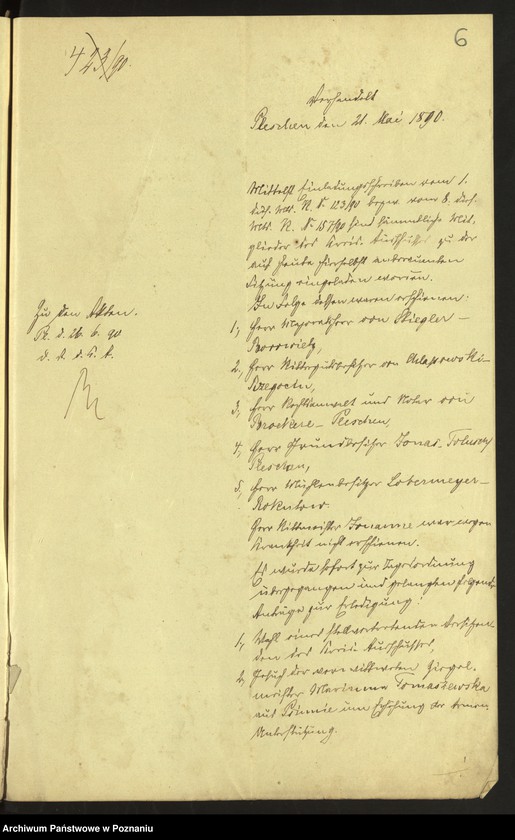 6
423/90.
Verhandelt
Pleschen den 21. Mai 1890.
Mittelst Einladungsschreiben vom 1.
bezw. vom 8. dess.
sind sämmtliche Mit-
glieder des Kreis-Ausschusses zu der
auf heute hierselbst anberaumten
Sitzung eingeladen worden.
In Folge dessen waren erschienen:
1, Herr von Stiegler –
2, Herr Rittergutsbesitzer von
3, Herr Rechtsanwalt und Notar von
Broekere – Pleschen,
4, Herr Grundbesitzer Jonas
Pleschen,
5, Herr Mühlenbesitzer Lobermeyer –
Rokutow.
Herr Rittmeister Jouanne war wegen
Krankheit nicht erschienen.
Es wurde sofort zur Tagesordnung
übergegangen und gelangten folgende
Anträge zur Erledigung:
1, Wahl eines stellvertretenden Vorsitzen-
den des Kreis-Ausschusses,
2, Gesuch der verwittweten Ziegel-
meister Marianna Tomaszewska
aus um Erhöhung der Armen-
Unterstützung.
Zu den Akten.
Pl. d. 26. 6. 90
Archiwum Państwowe w Poznaniu